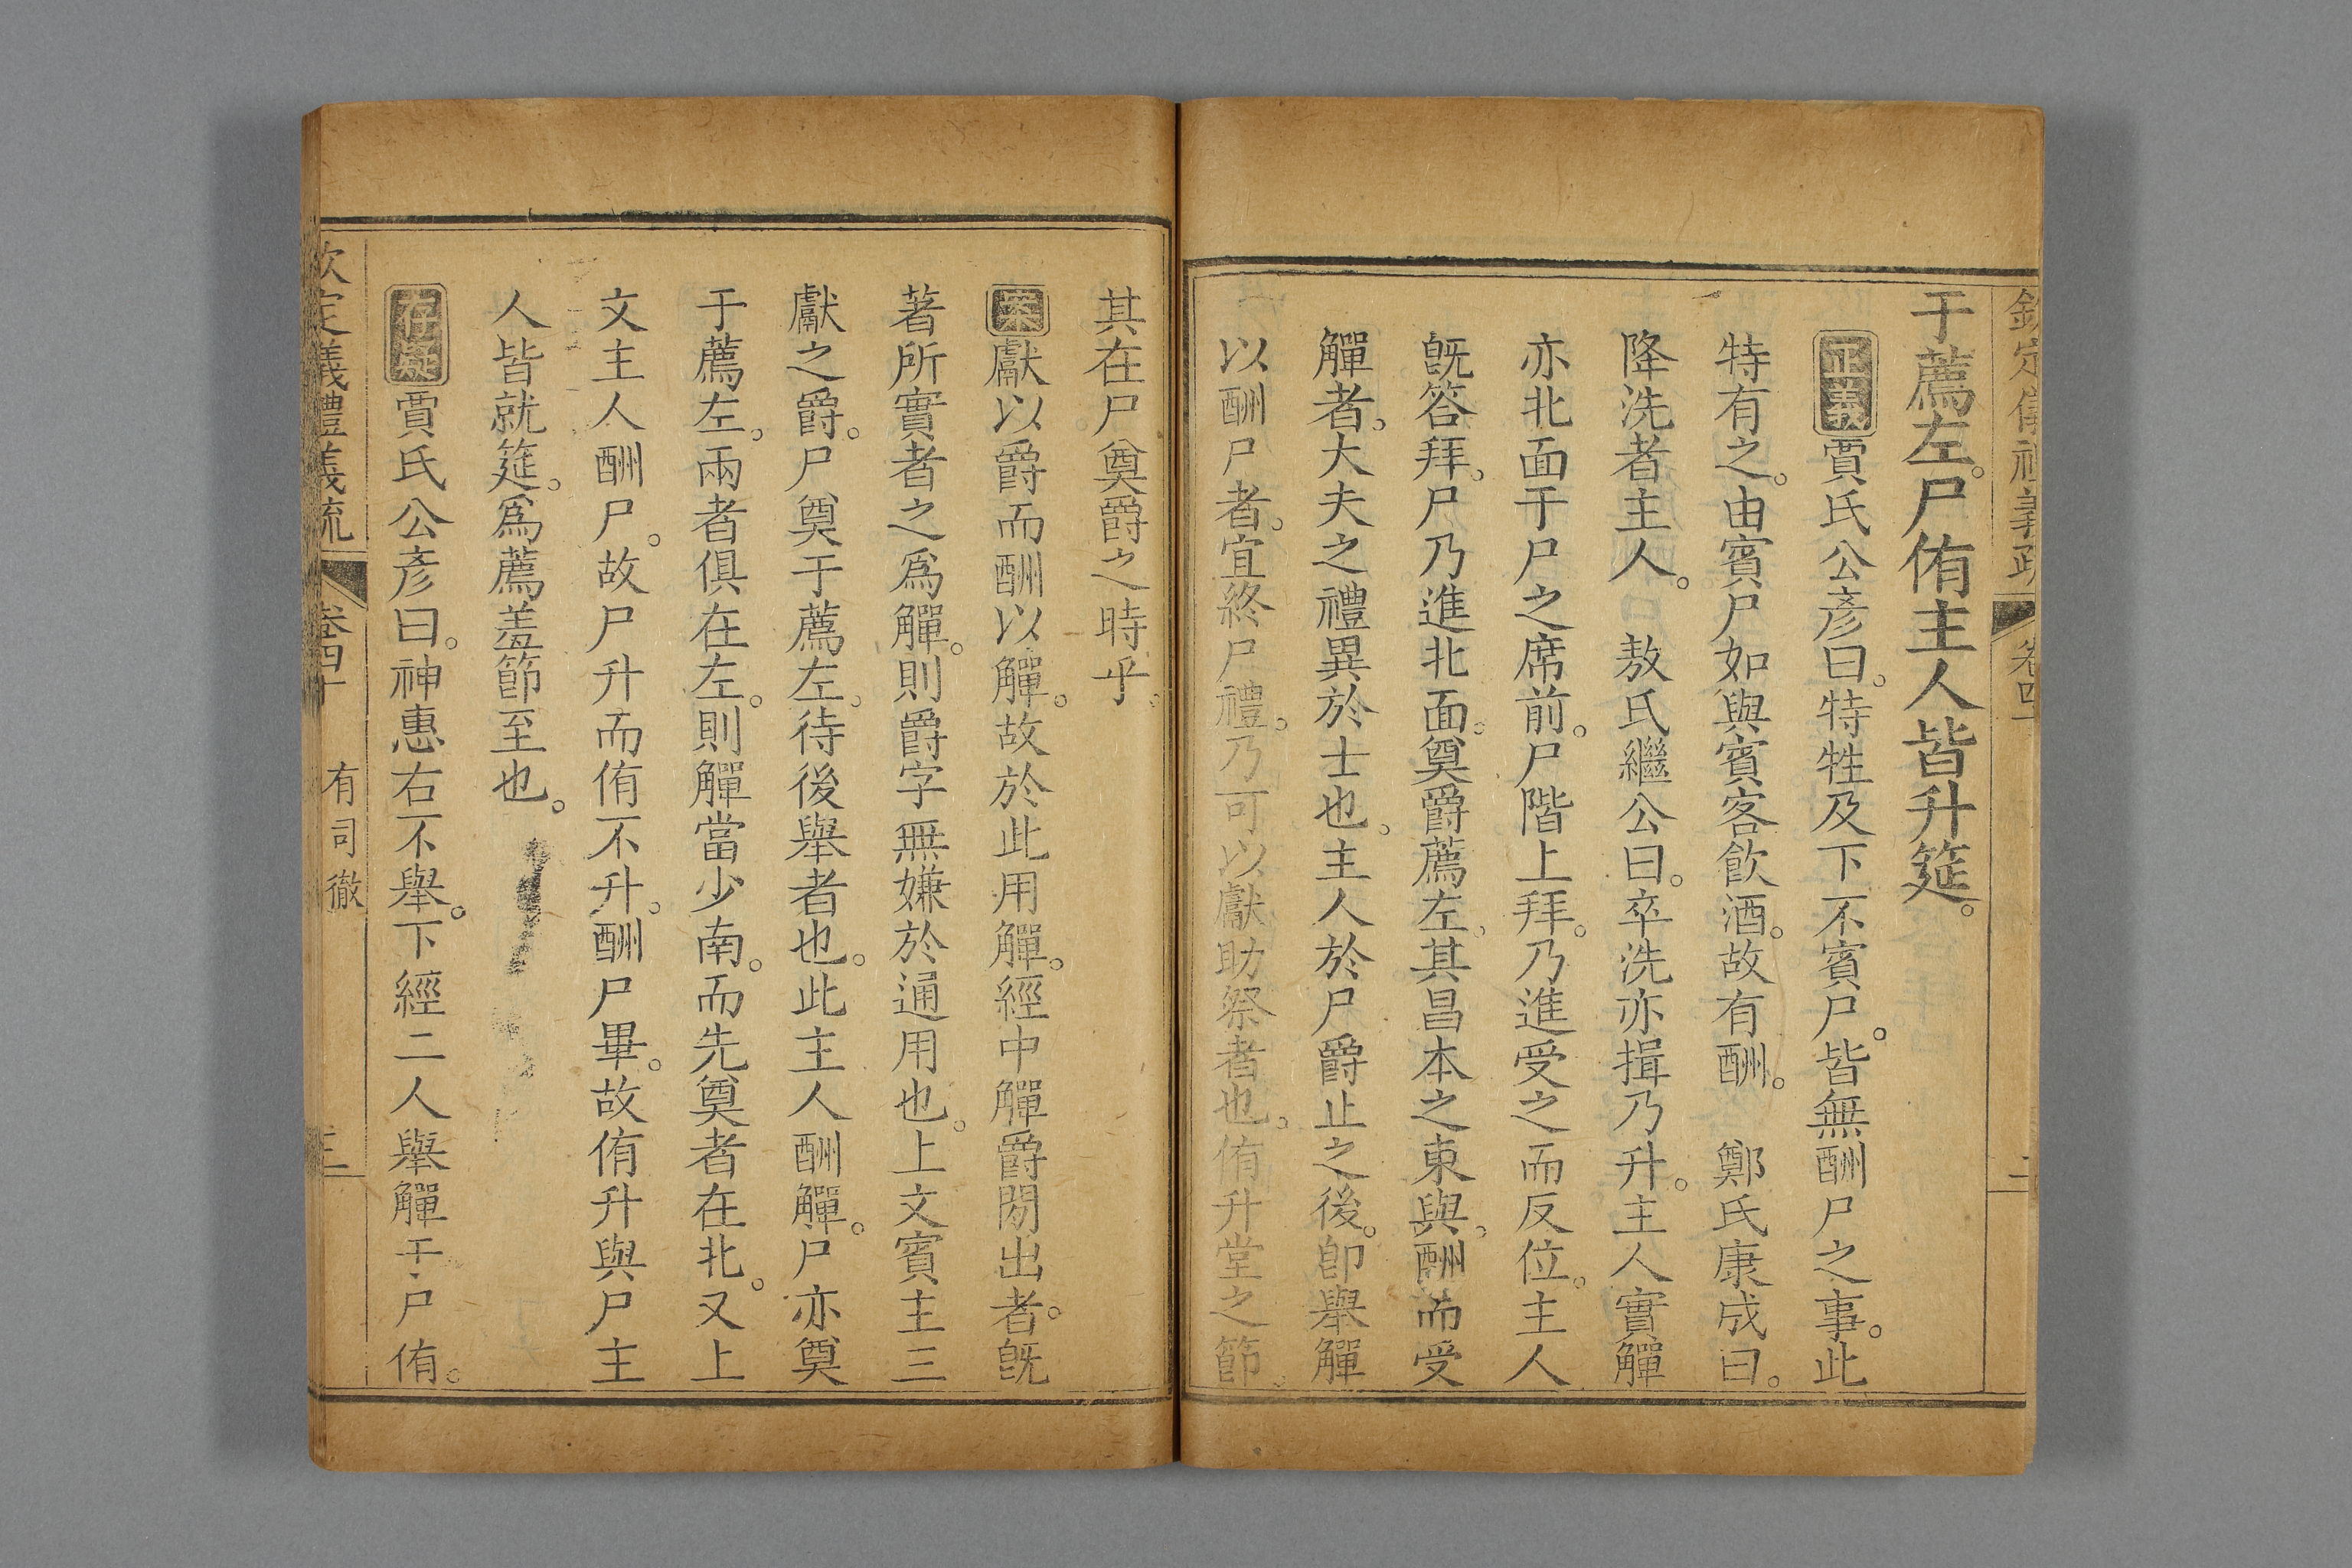 欽定儀禮義疏 卷四十 二
于薦左。尸侑主人皆升筵。
正義賈氏公彥曰。特牲及下不賓尸。皆無酬尸之事。此
特有之。由賓尸如與賓客飲酒。故有酬。 鄭氏康成曰。
降洗者主人。 敖氏繼公曰。卒洗亦揖乃升。主人實觶
亦北面于尸之席前。尸階上拜。乃進受之而反位。主人
旣答拜。尸乃進北面。奠爵薦左。其昌本之東與。酬而受
觶者。大夫之禮異於士也。主人於尸爵止之後。卽舉觶
以酬尸者。宜終尸禮。乃可以獻助祭者也。侑升堂之節。
其在尸奠爵之時乎。
案獻以爵而酬以觶。故於此用觶。經中觶爵閒出者。旣
著所實者之爲觶。則爵字無嫌於通用也。上文賓主三
獻之爵。尸奠于薦左。待後舉者也。此主人酬觶。尸亦奠
于薦左。兩者俱在左。則觶當少南。而先奠者在北。又上
文主人酬尸。故尸升而侑不升。酬尸畢。故侑升與尸主
人皆就筵。爲薦羞節至也。
存疑賈氏公彥曰。神惠右不舉。下經二人舉觶于尸侑。
欽定儀禮義疏 卷四十 有司徹